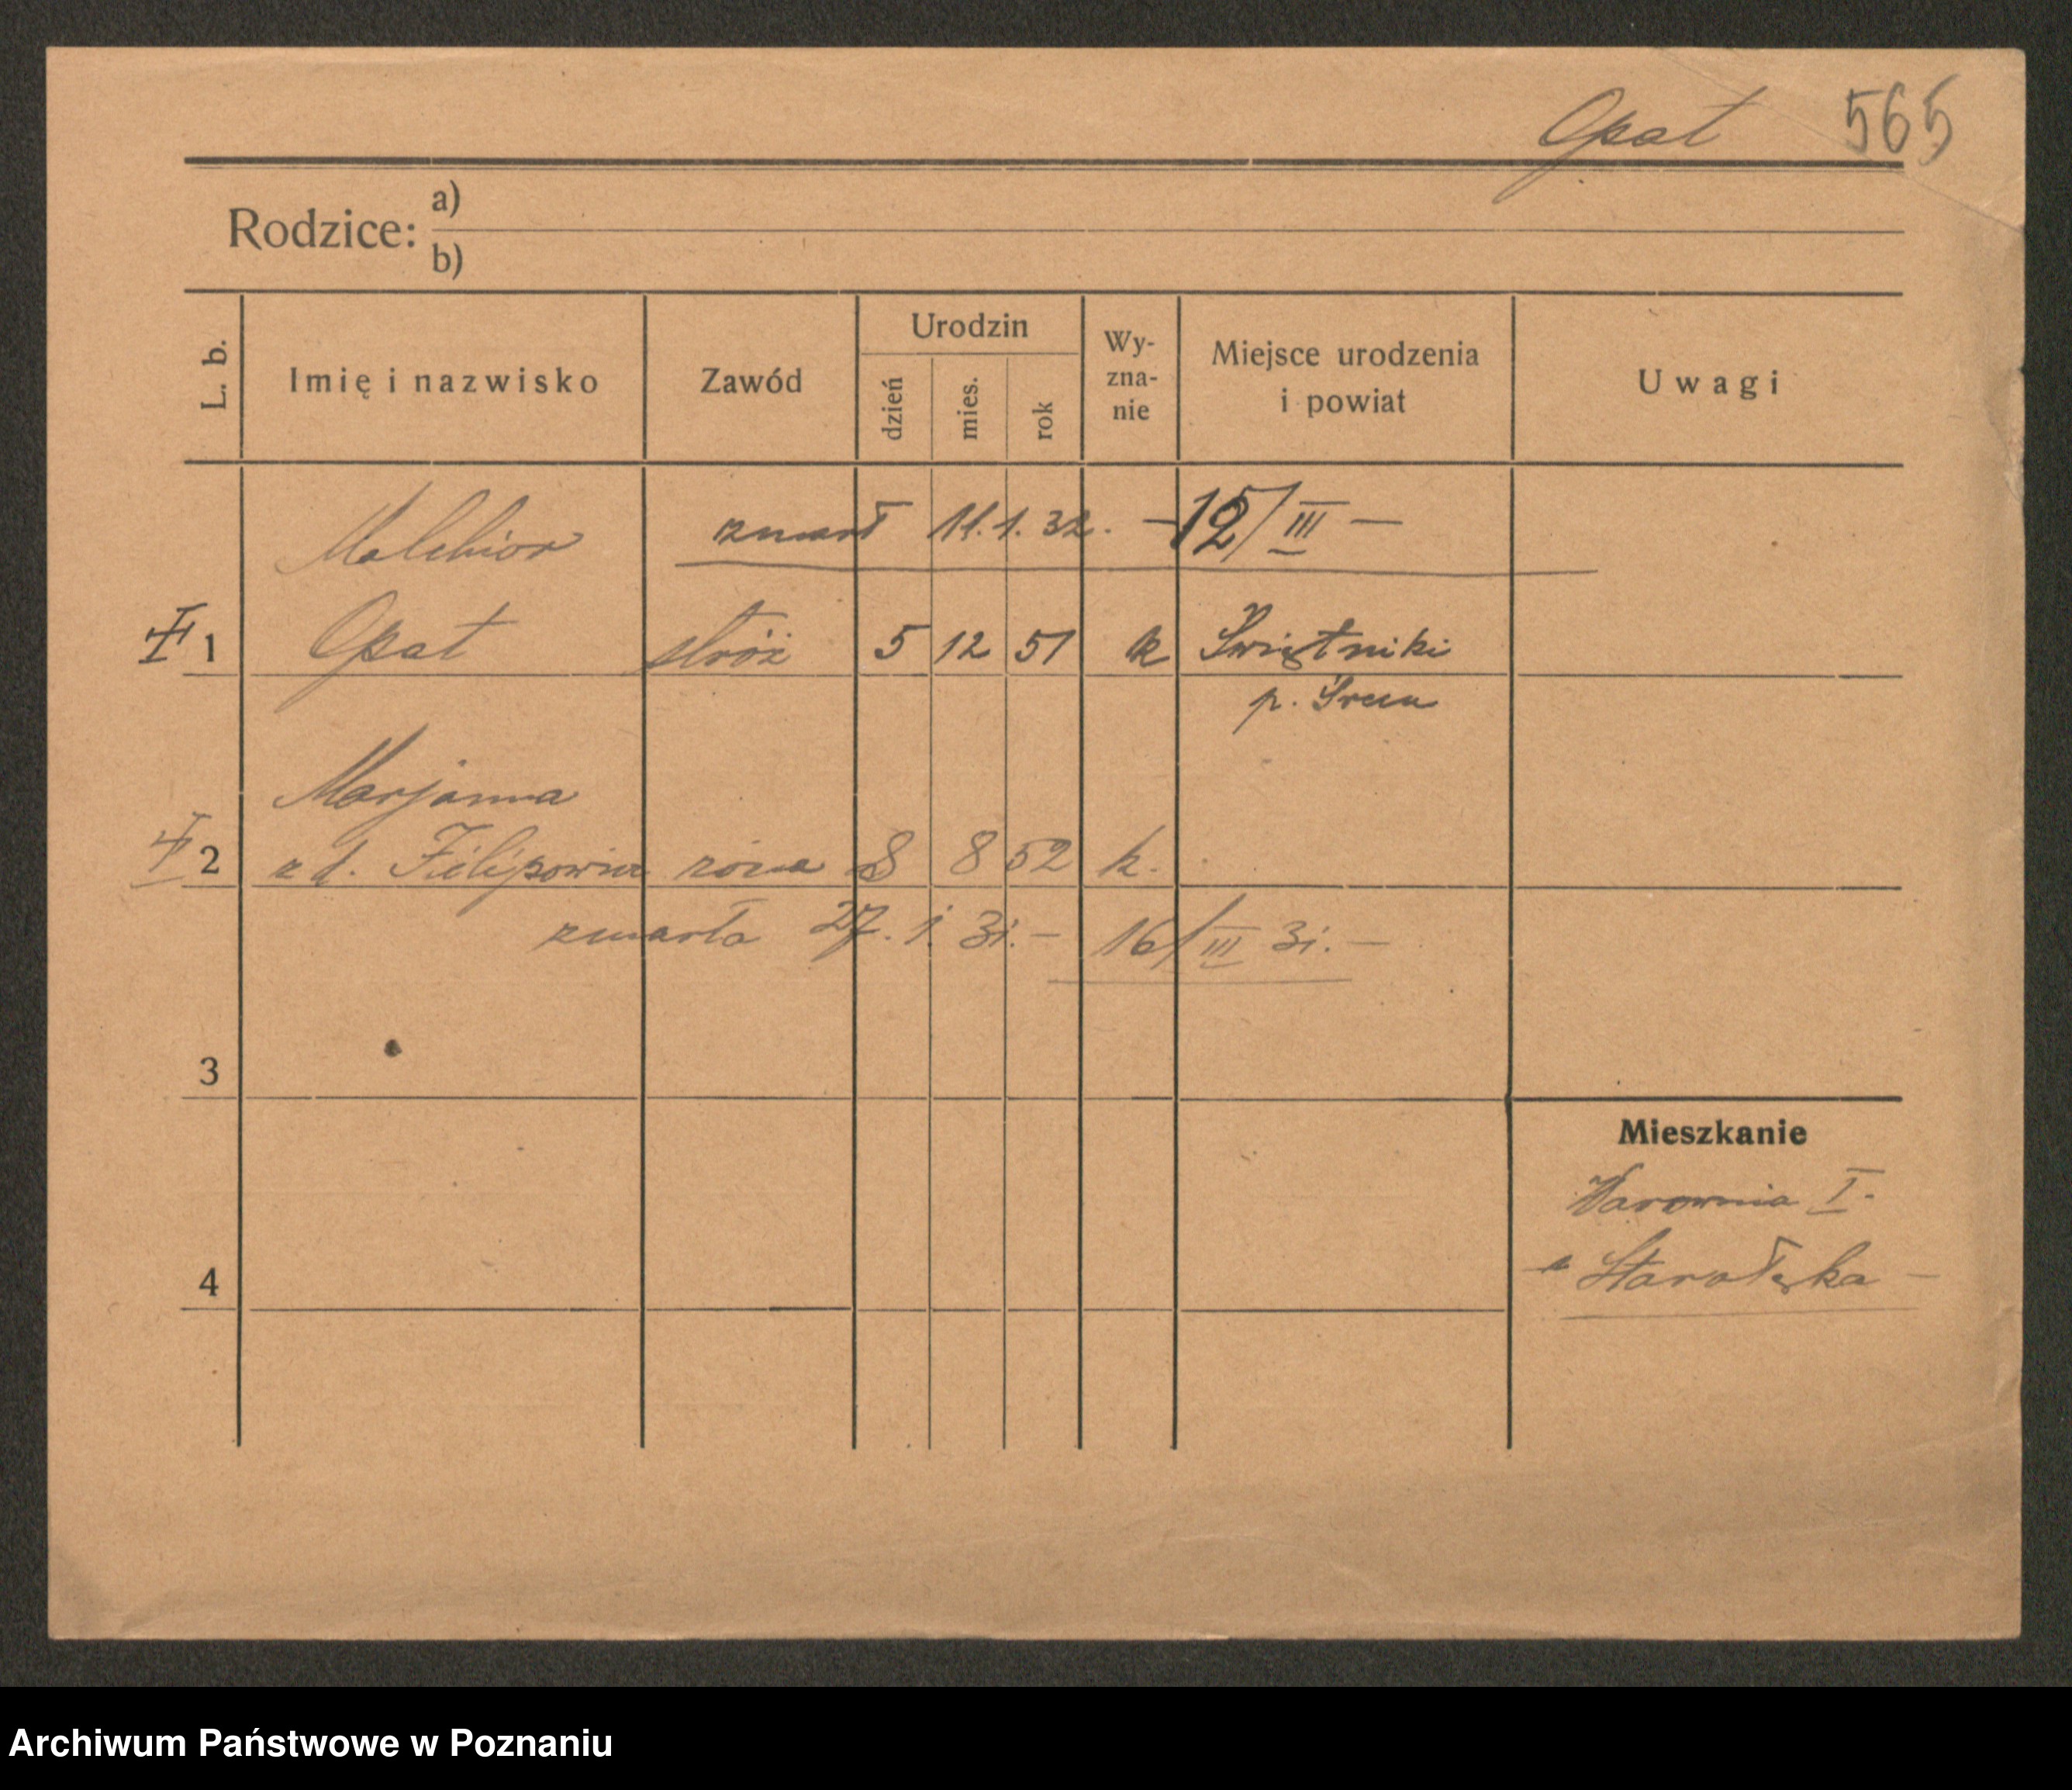 Opat 565
Rodzice: a)
b)
L. b. Imię i nazwisko Zawód Urodzin dzień mies. rok Wy-zna-nie Miejsce urodzenia i powiat Uwagi
Melchior zmarł 11.1.32. — /III —
1 Opat stróż 5 12 51 k Świętniki
p. Śrem
Marjanna
2 z d. Filipowicz żona 8 8 52 k.
zmarła 27. 1. 31. — 16/III 31. —
3
Mieszkanie
Warownia I.
4 Starołęka —
Archiwum Państwowe w Poznaniu